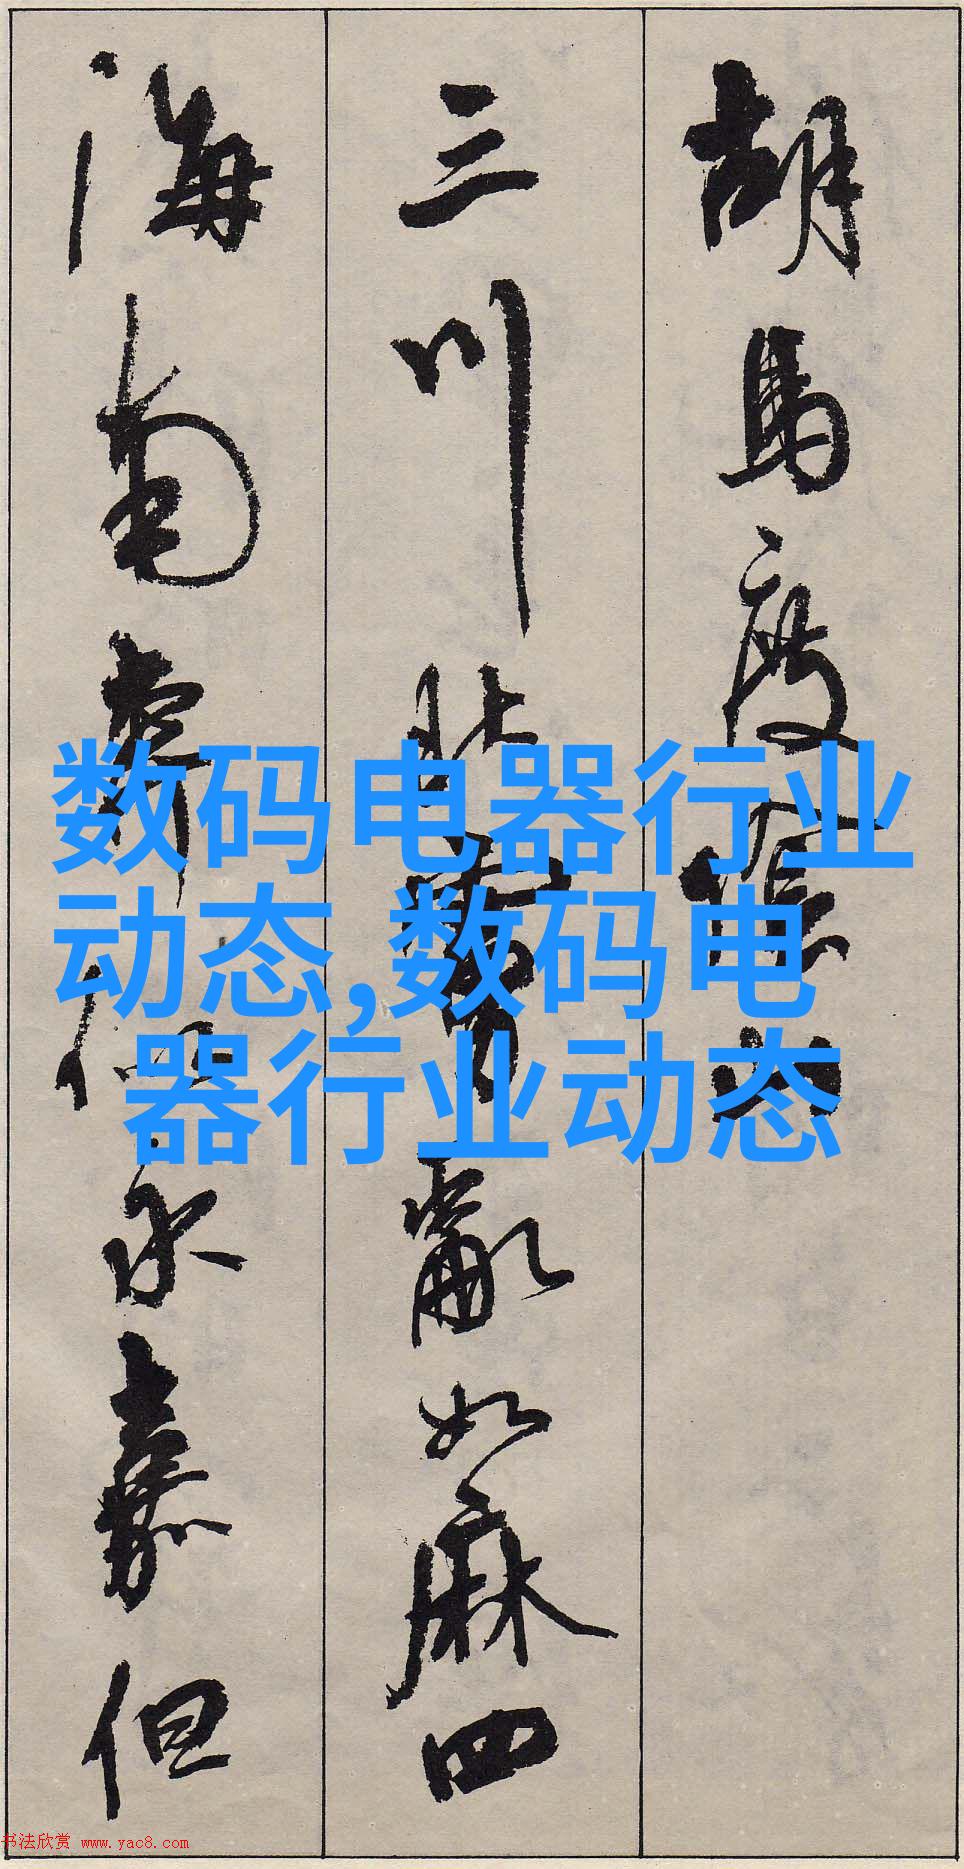 胡馬度陰山
三川北虜亂如麻四
海南奔似永嘉但
数码电器行业
动态,数码电
器行业动态
书法欣赏 www.yac8.com